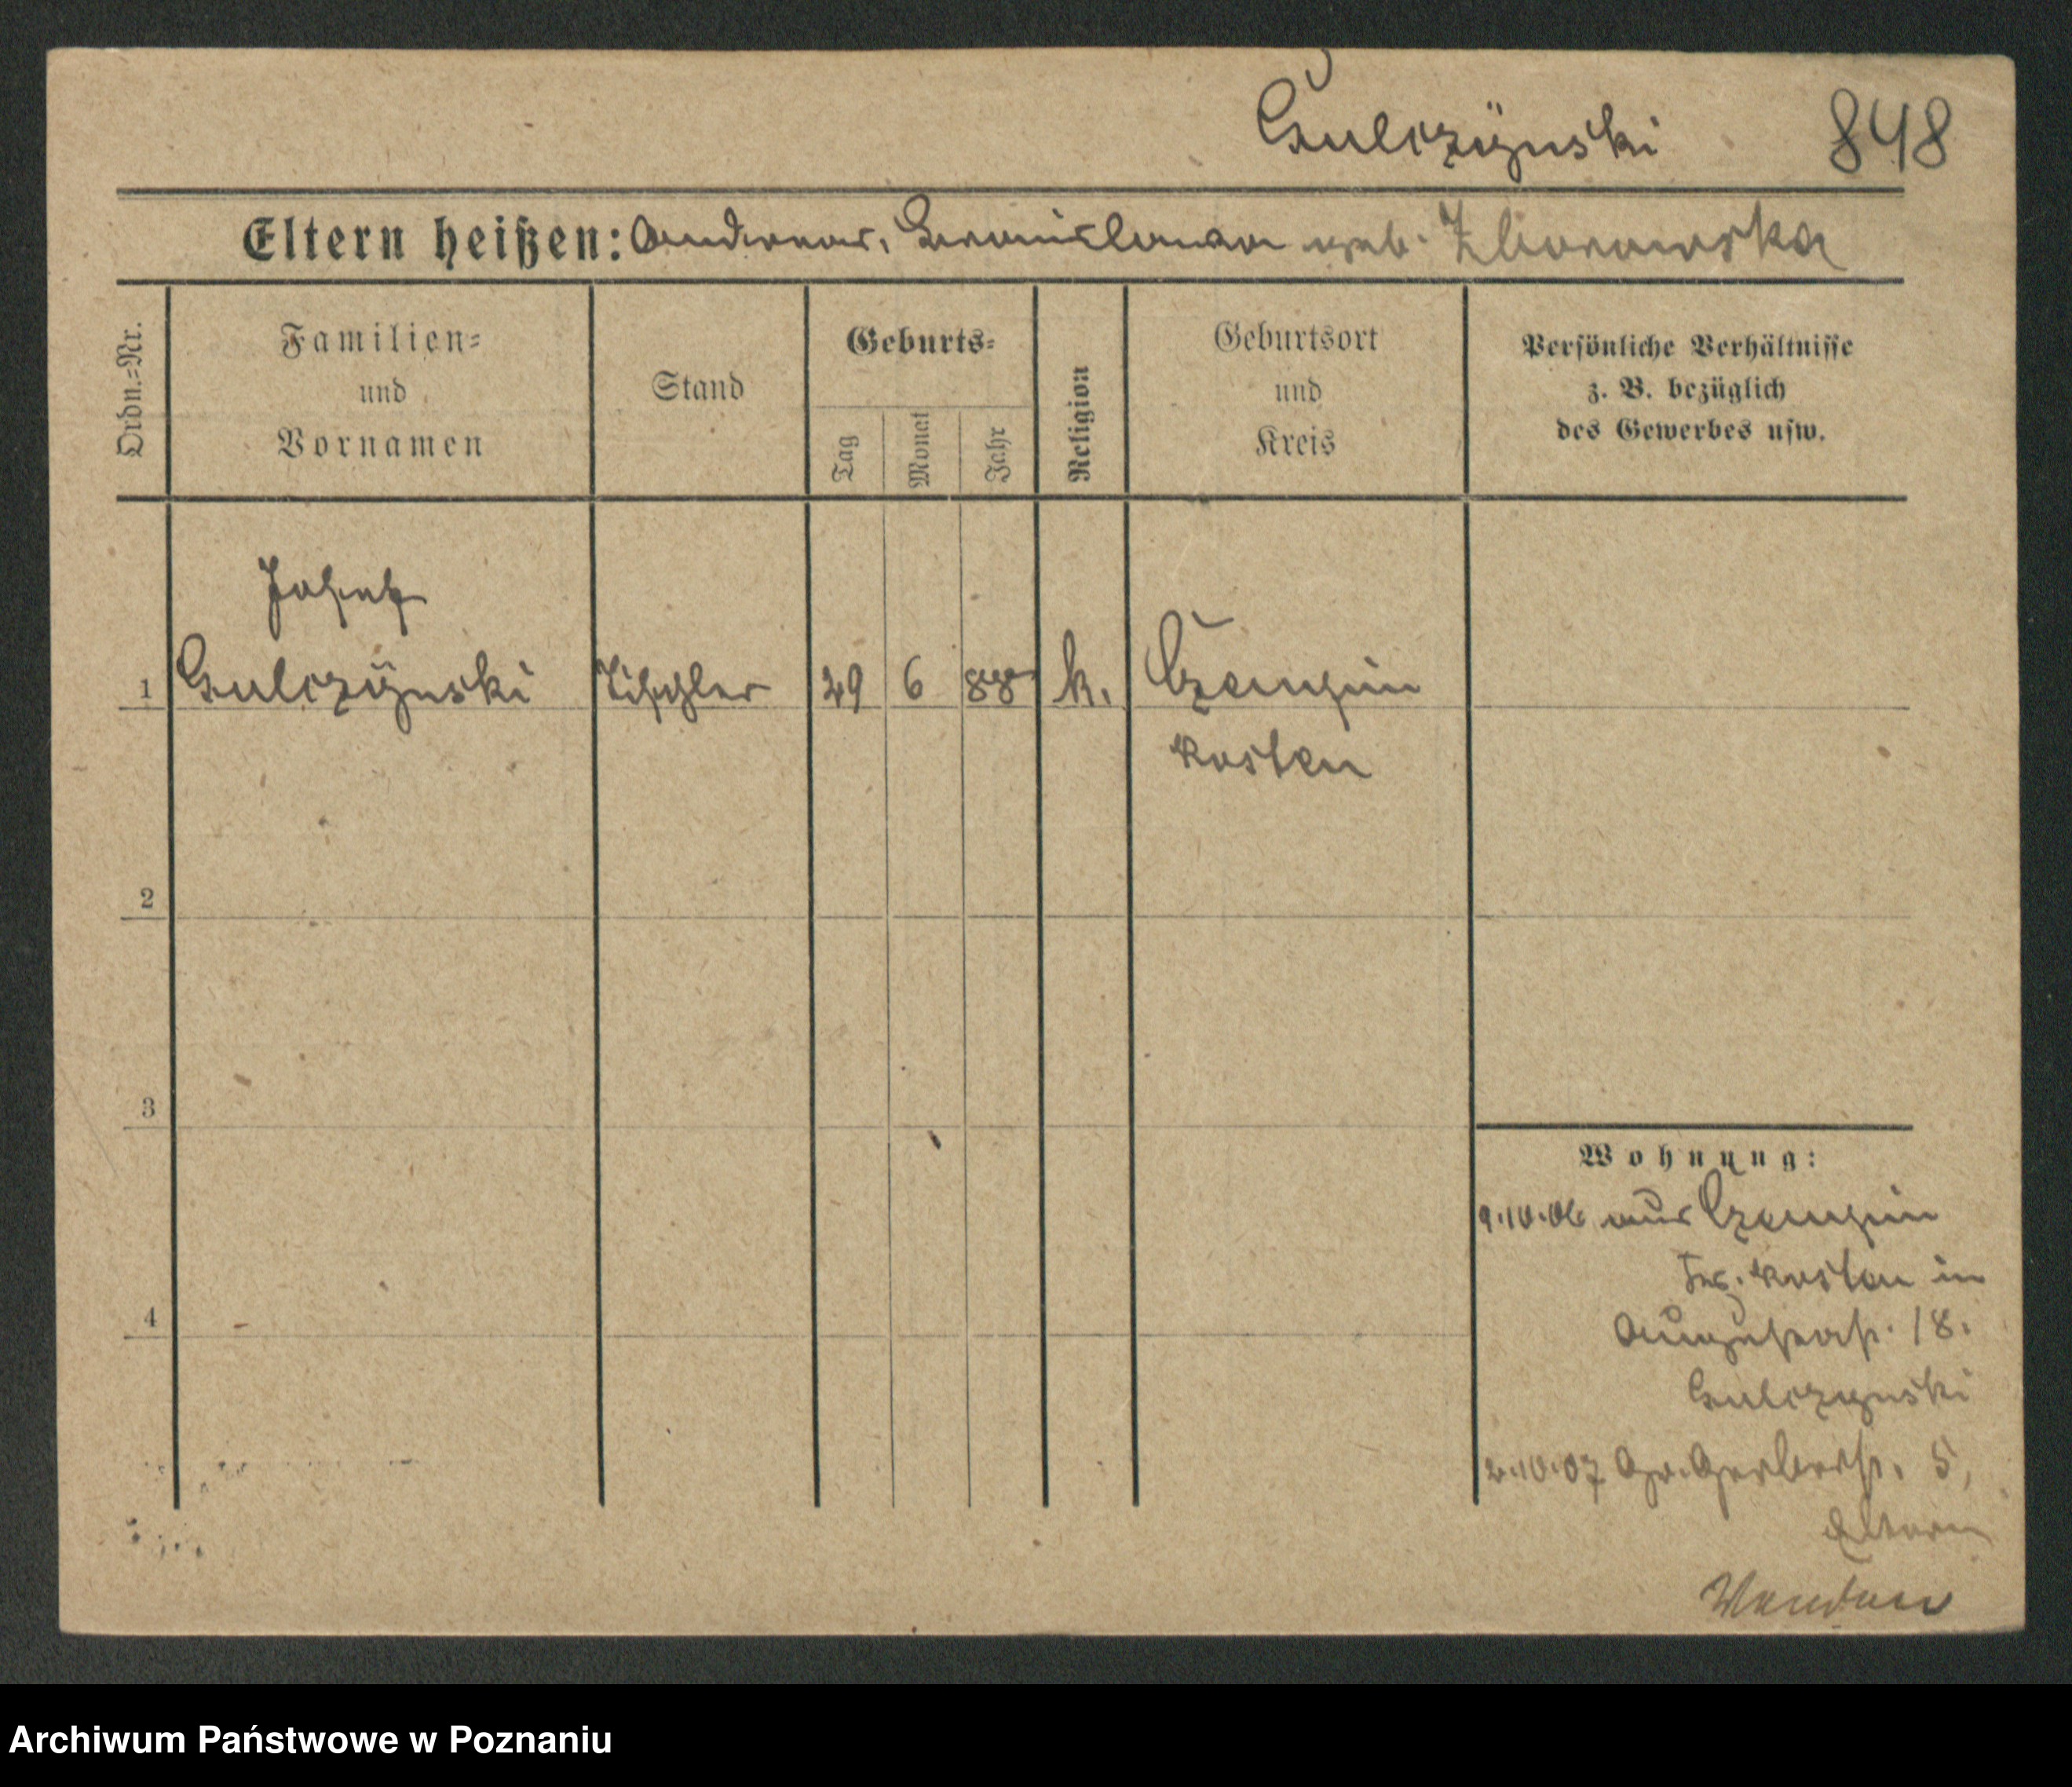 Gulczÿnski 848
Eltern heißen: Andreas, Bronislawa geb. Zborowska
Ordn.=Nr.
Familien=
und
Vornamen
Stand
Geburts=
Tag
Monat
Jahr
Religion
Geburtsort
und
Kreis
Persönliche Verhältnisse
z. B. bezüglich
des Gewerbes usw.
Josef
1 Gulczÿnski Tischler 29 6 88 k. Czempin
Kosten
2
3
4
Wohnung:
9.10.06 aus Czempin
Kosten in
Augustastr. 18.
Gulczynski
2.10.07 Gr. Gerberstr. 5,
Eltern
Archiwum Państwowe w Poznaniu